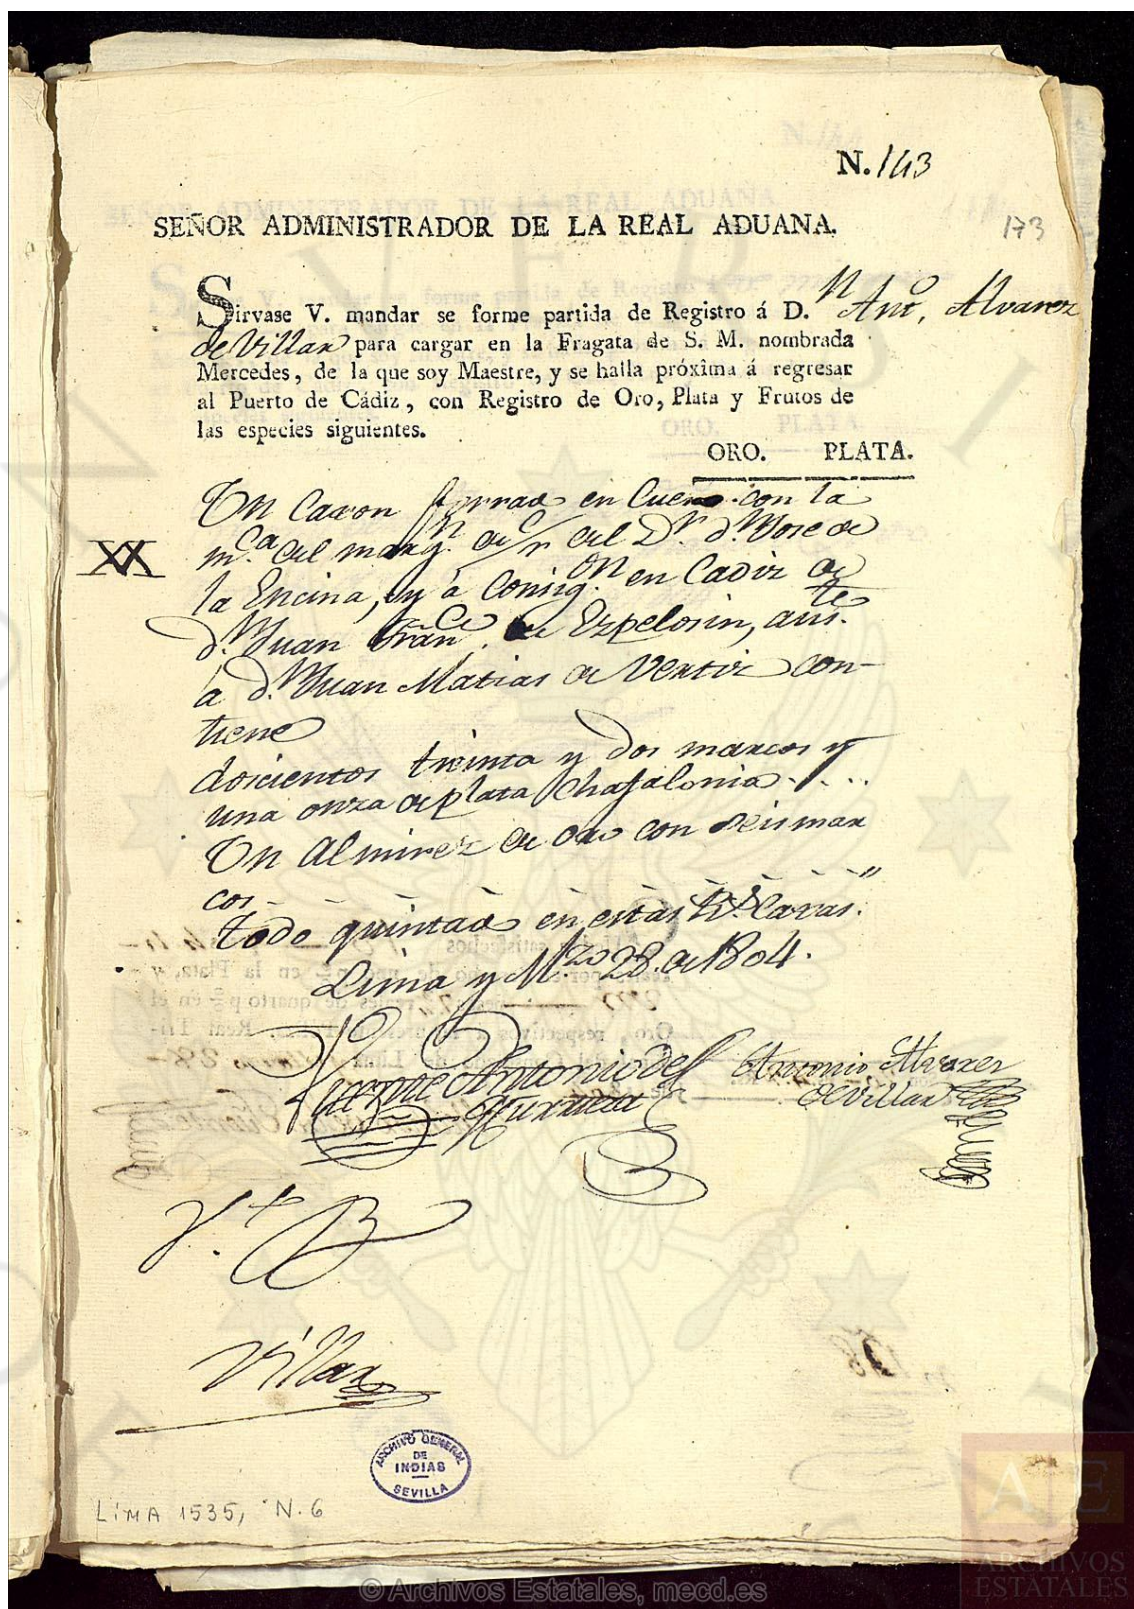 N. 143
173
SEÑOR ADMINISTRADOR DE LA REAL ADUANA.
Sirvase V. mandar se forme partida de Registro á D.n Anto. Alvarez
de Villar para cargar en la Fragata de S. M. nombrada
Mercedes, de la que soy Maestre, y se halla próxîma á regresar
al Puerto de Cádiz, con Registro de Oro, Plata y Frutos de
las especies siguientes.
ORO. PLATA.
Un Caxon forrado en Cuero con la
m.ca del marg.n de c/r del D.r d.n Jose de
la Encina, y á Consig.on en Cadiz de
d.n Juan Fran.co de Ezpelosin, aus.te
á d.n Juan Matias de Vertiz con-
tiene
doscientos treinta y dos marcos y
una onza de plata Chafalonia
Un Almirez de oro con seis mar
cos
todo quintado en estas R.s Caxas.
Lima y M.zo 28. de 1804.
Vicente Antonio de
Murrieta
Antonio Alvarez
de Villar
V.to B
Villar
ARCHIVO GENERAL
DE
INDIAS
SEVILLA
LIMA 1535, N. 6
AE
ARCHIVOS
ESTATALES
© Archivos Estatales, mecd.es